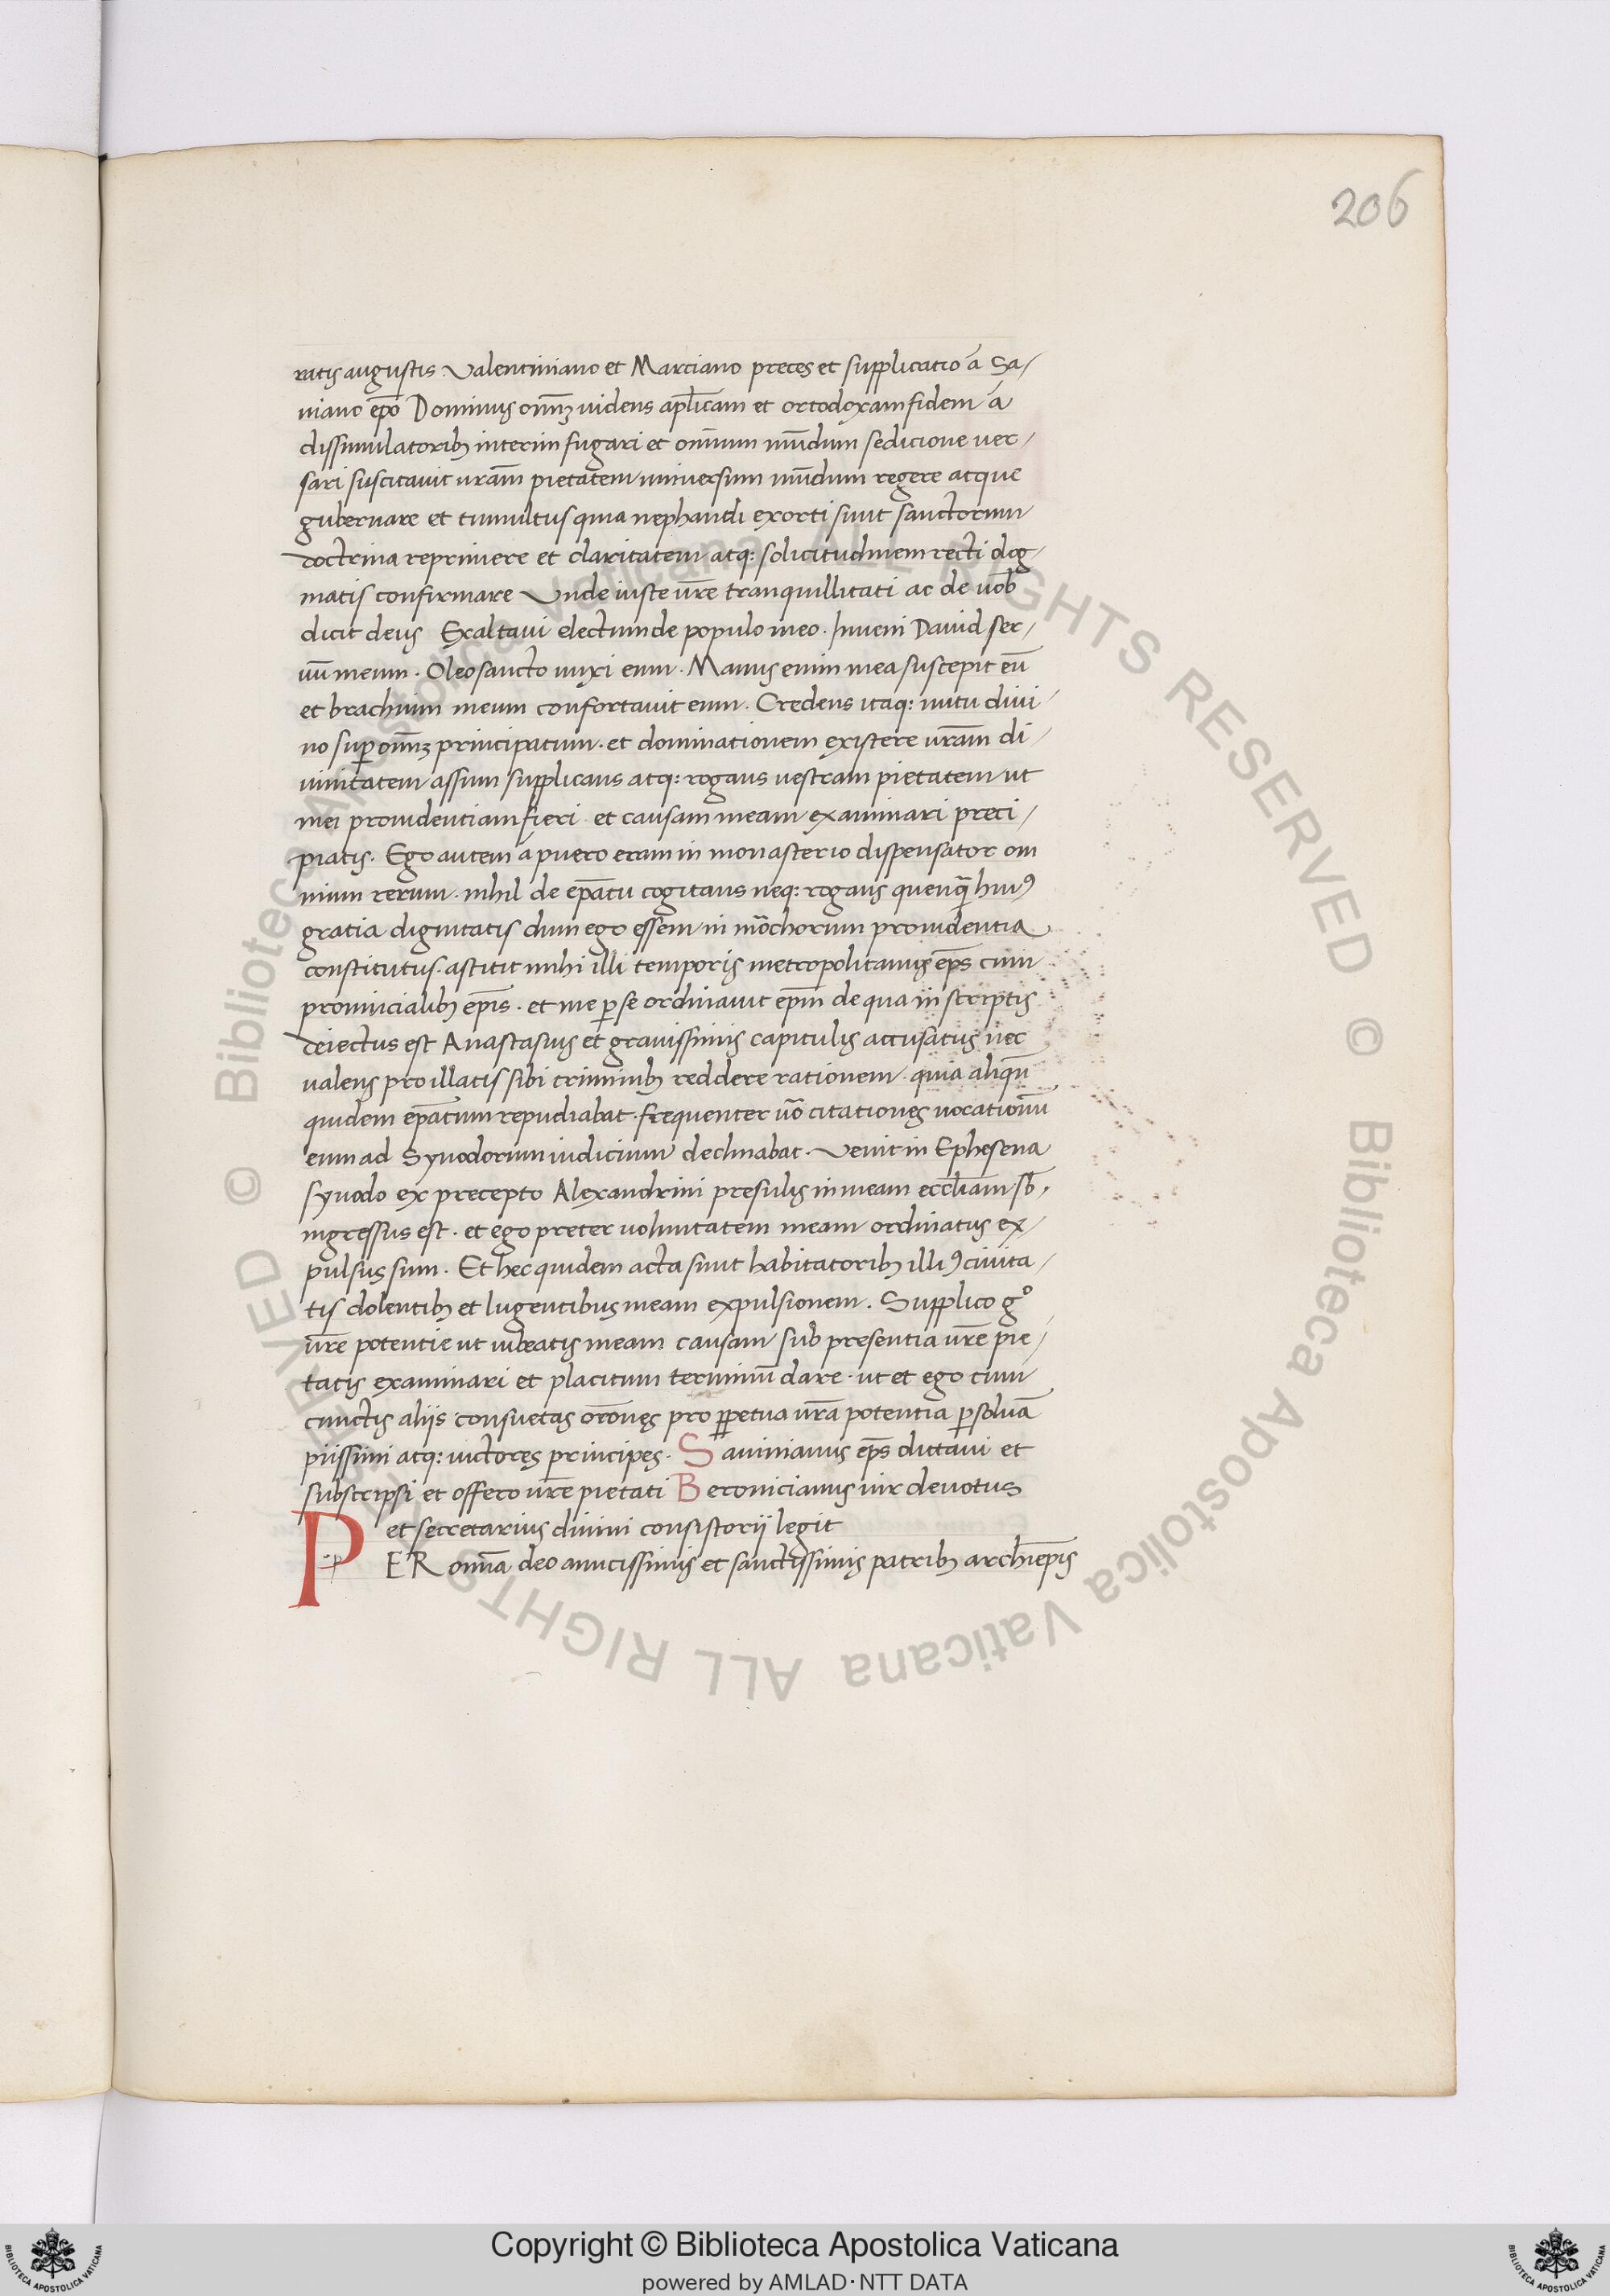 206
ratis augustis. Valentiniano et Marciano preces et supplicatio á Sa/
uiano ep̄o Dominus om̄ȝ uidens apl̄icam et ortodoxam fidem á
dissimulatoribȝ interim fugari et om̄num mūdum sedicione uer/
sari suscitauit ur̄am pietatem uniuersum mūdum regere atque
gubernare et tumultus quia nephandi exorti sunt sanctorum
doctrina reprimere et claritatem atq: solicitudinem recti dog/
matis confirmare Vnde iuste ur̄e tranquillitati ac de uob̄
dicit deus Exaltaui electum de populo meo. Inueni Dauid ser/
uū meum. Oleo sancto unxi eum. Manus enim mea suscepit eū
et brachium meum confortauit eum. Credens itaq: nutu diui/
no suꝑ om̄ȝ principatum. et dominationem existere ur̄am di/
uinitatem assum supplicans atq: rogans uestram pietatem ut
mei prouidentiam fieri et causam meam examinari preci/
piatis. Ego autem á puero eram in monasterio dispensator om
nium rerum. nihil de ep̄atu cogitans neq: rogans quenq̄ huiꝰ
gratia dignitatis dum ego essem in mōchorum prouidentia
constitutus. astitit mihi illi temporis metropolitanus ep̄s cum
prouincialibȝ ep̄is. et me ꝑ se ordinauit ep̄m de qua in scriptis
deiectus est Anastasius et grauissimis capitulis accusatus nec
ualens pro illatis sibi criminibȝ reddere rationem. quia aliqn̄
quidem ep̄atum repudiabat. frequenter uō citationes uocationū
eum ad Synodorum iudicium declinabat. Venit in Ephesena
synodo ex precepto Alexandrini presulis in meam eccl̄iam sb̄.
ingressus est. et ego preter uoluntatem meam ordinatus ex/
pulsus sum. Et hec quidem acta sunt habitatoribȝ illiꝰ ciuita/
tis dolentibȝ et lugentibus meam expulsionem. Supplico g°
ur̄e potentie ut iubeatis meam causam sub presentia ur̄e pie/
tatis examinari et placitum terminū dare. ut et ego cum
cunctis aliis consuetas orōnes pro ꝑpetua ur̄a potentia ꝑsoluā
piissimi atq: uictores principes. Sauinianus ep̄s dictaui et
subscripsi et offero ur̄e pietati Beronicianus uir deuotus
et secretarius diuini consistorii legit
PER omnīa deo amicissimis et sanctissimis patribȝ archiep̄is
Copyright © Biblioteca Apostolica Vaticana
powered by AMLAD·NTT DATA
© Biblioteca Apostolica Vaticana ALL RIGHTS RESERVED © Biblioteca Apostolica Vaticana ALL RIGHTS RESERVED
BIBLIOTECA APOSTOLICA VATICANA
BIBLIOTECA APOSTOLICA VATICANA